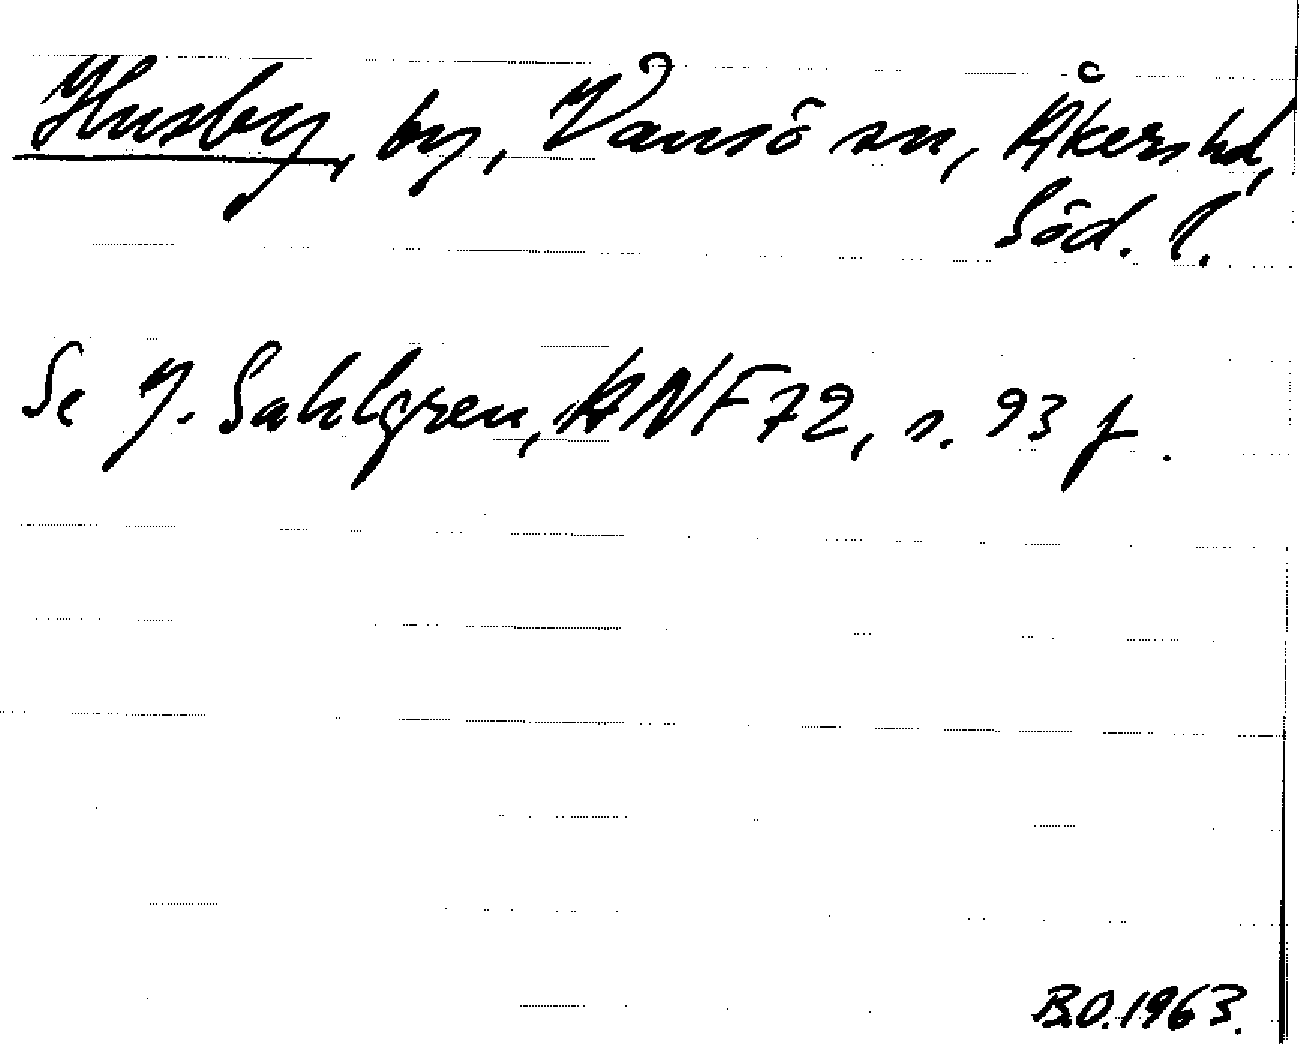 Husby, by, Vansö sn, Åkers hd,
Söd. l.
Se J. Sahlgren, ANF 72, s. 93 f.
B.O. 1963.